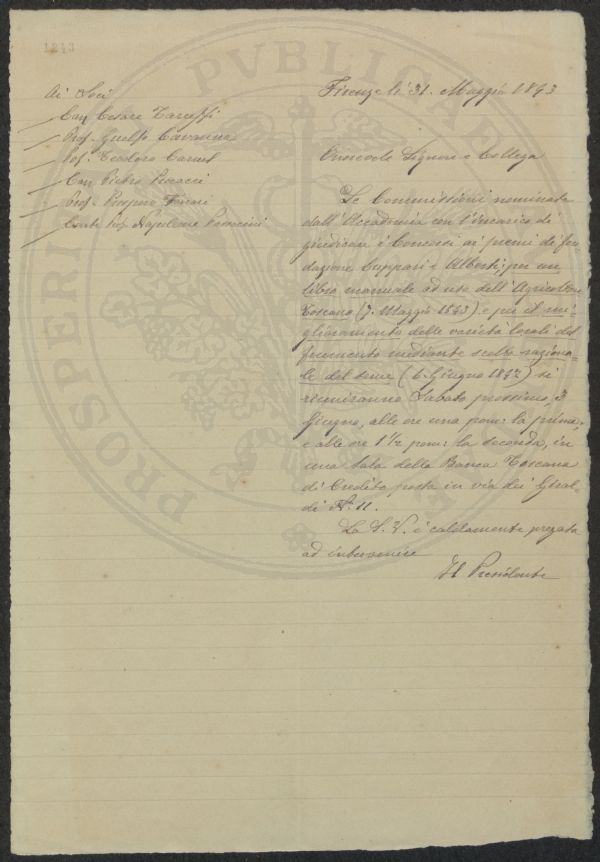 1243
Ai Soci
Cav. Cesare Taruffi
Prof. Guelfo Cavanna
Prof. Teodoro Caruel
Cav. Pietro
Prof. Prospero Ferrari
Conte Ing. Napoleone Passerini
Firenze lì 31. Maggio 1893
Onorevole Signore e Collega
Le Commissioni nominate
dall'Accademia con l'incarico di
giudicare i Concorsi ai premi di fon-
dazione Cuppari e Alberti, per un
libro manuale ad uso dell'Agricoltore
Toscano (7. Maggio 1893) e per il mi-
glioramento delle varietà locali del
frumento mediante scelta raziona-
le del seme (6. Giugno 1892) si
riuniranno Sabato prossimo, 3
Giugno, alle ore una pom: la prima,
e alle ore 1 1/2 pom: la seconda, in
una sala della Banca Toscana
di Credito posta in via dei Giral-
di N. 11.
La S. V. è caldamente pregata
ad intervenire
Il Presidente
PROSPERITATI PVBLICAE